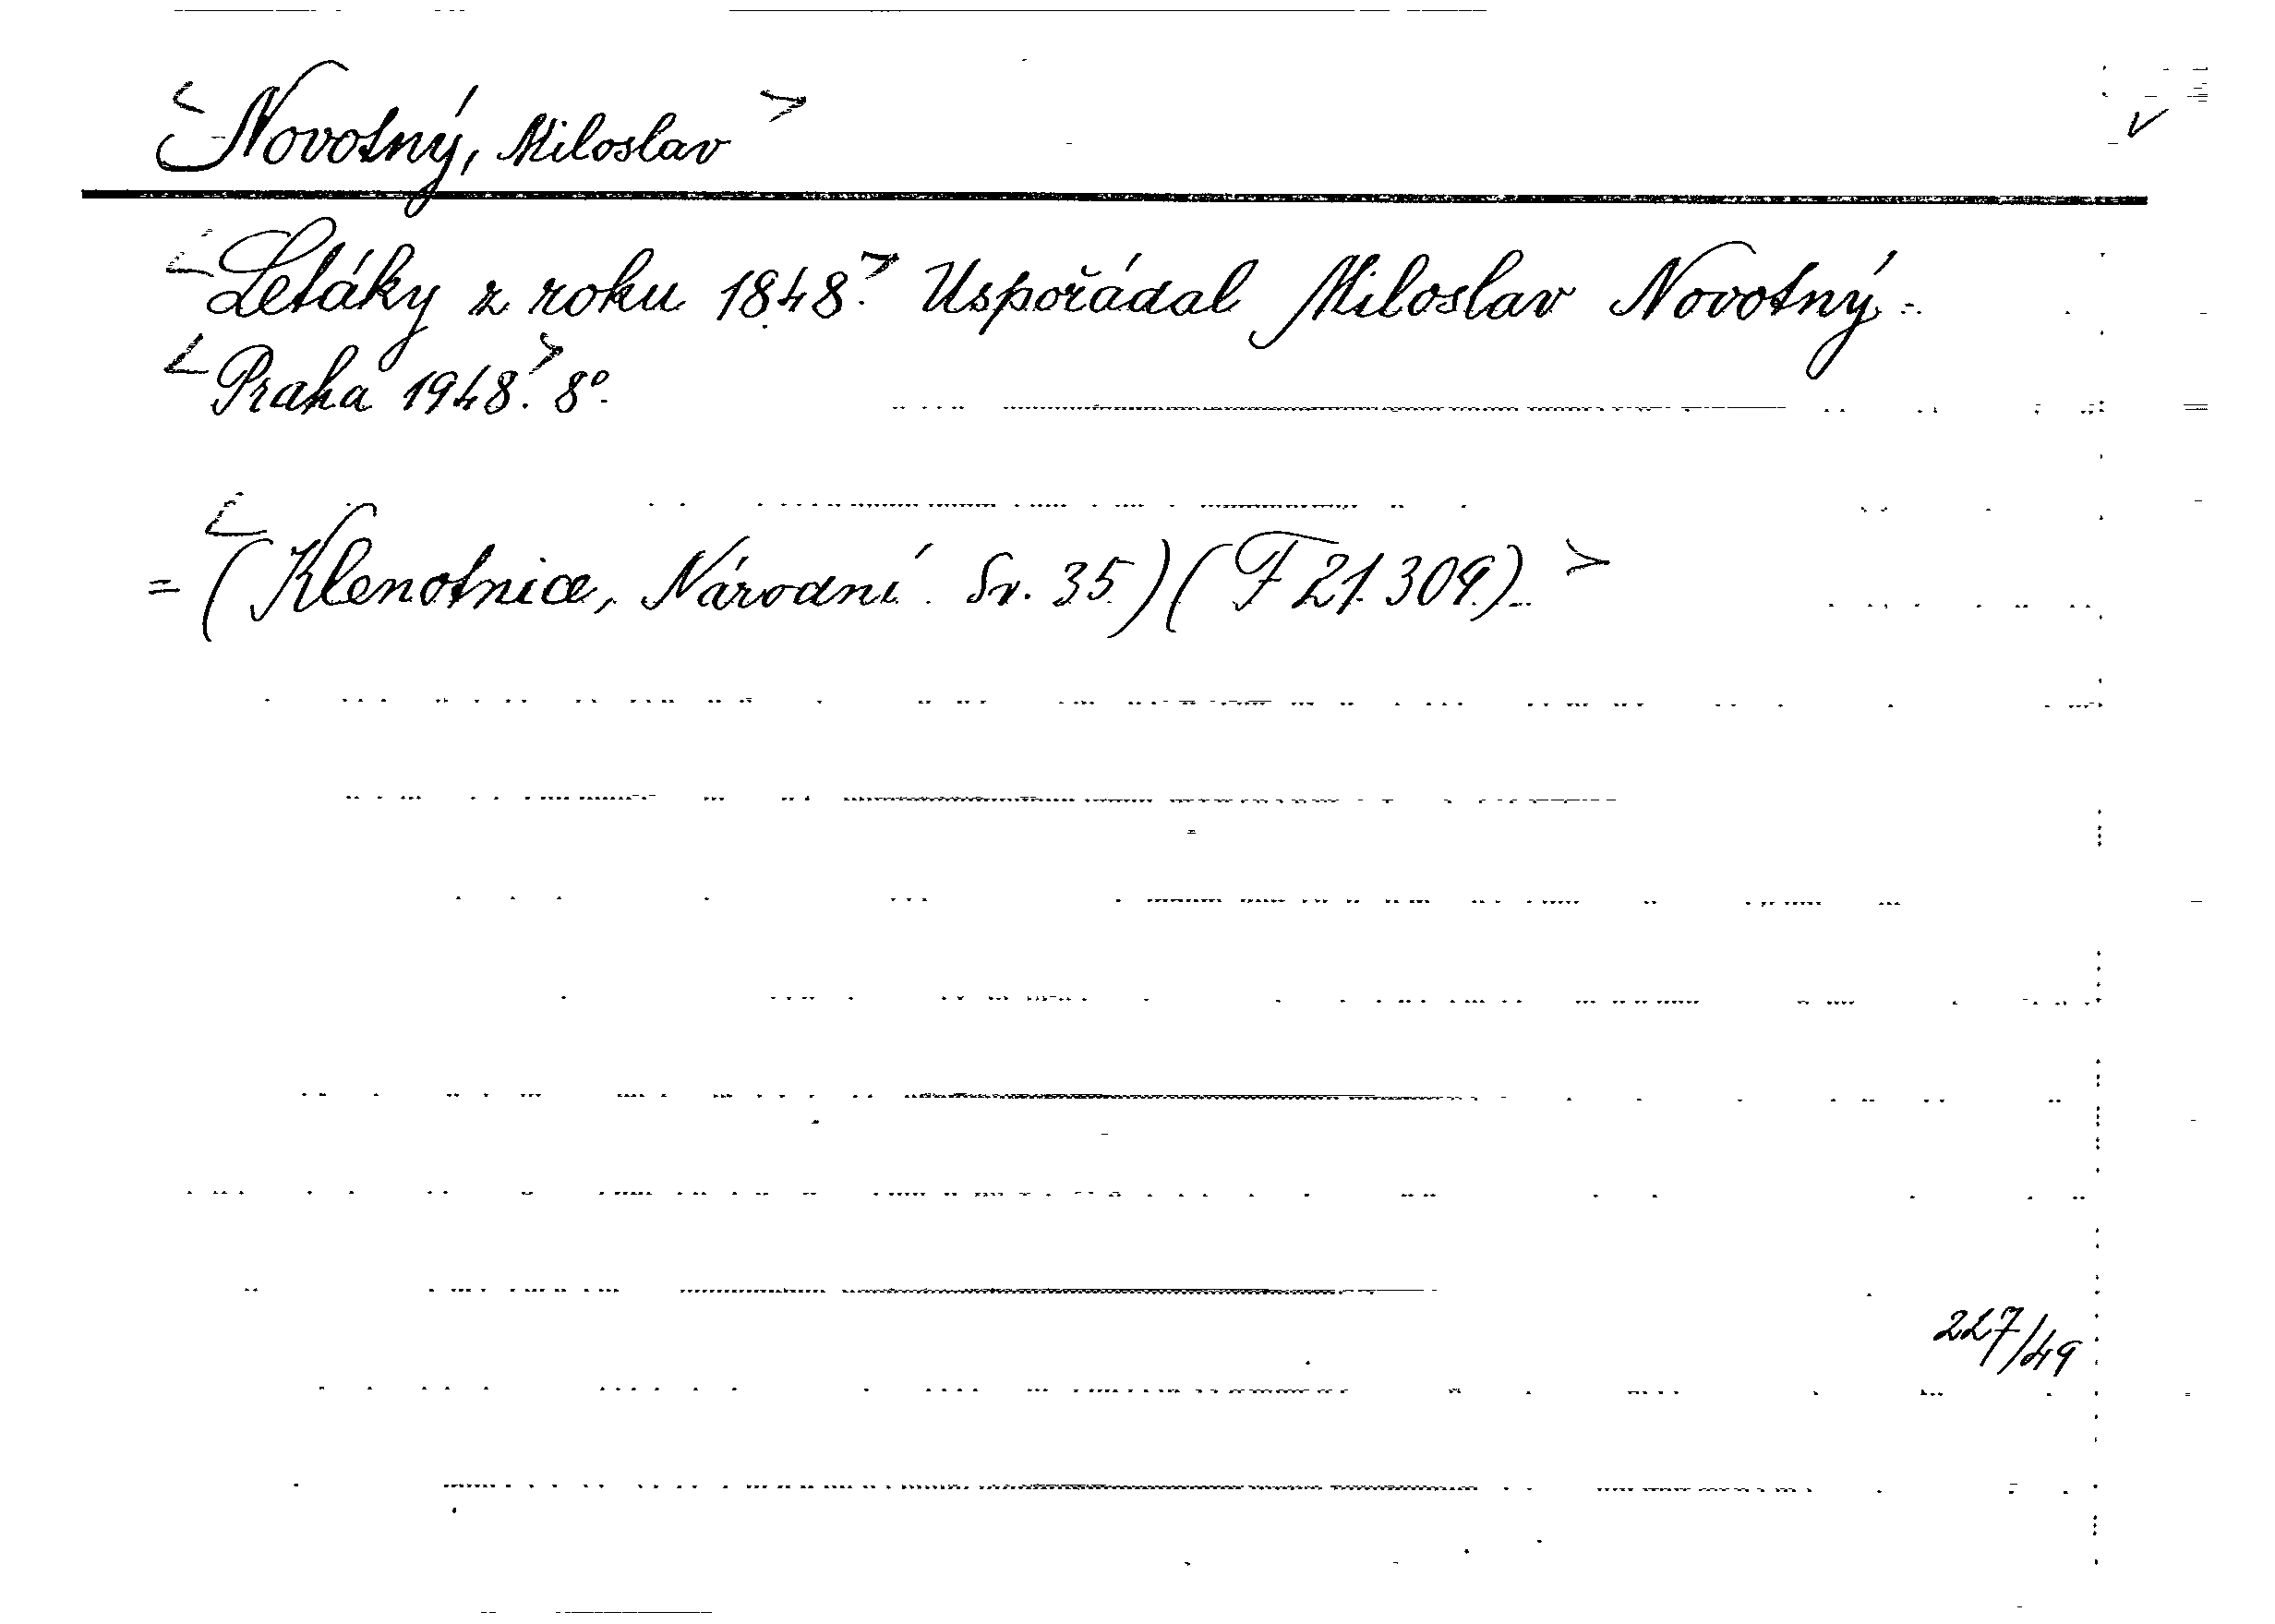 <Novotný, Miloslav> v
<Letáky z roku 1848.> Uspořádal Miloslav Novotný.-
<Praha 1948.> 8º.
=<(Klenotnice, Národní. Sv. 35.)(F 21.309).>
227/49